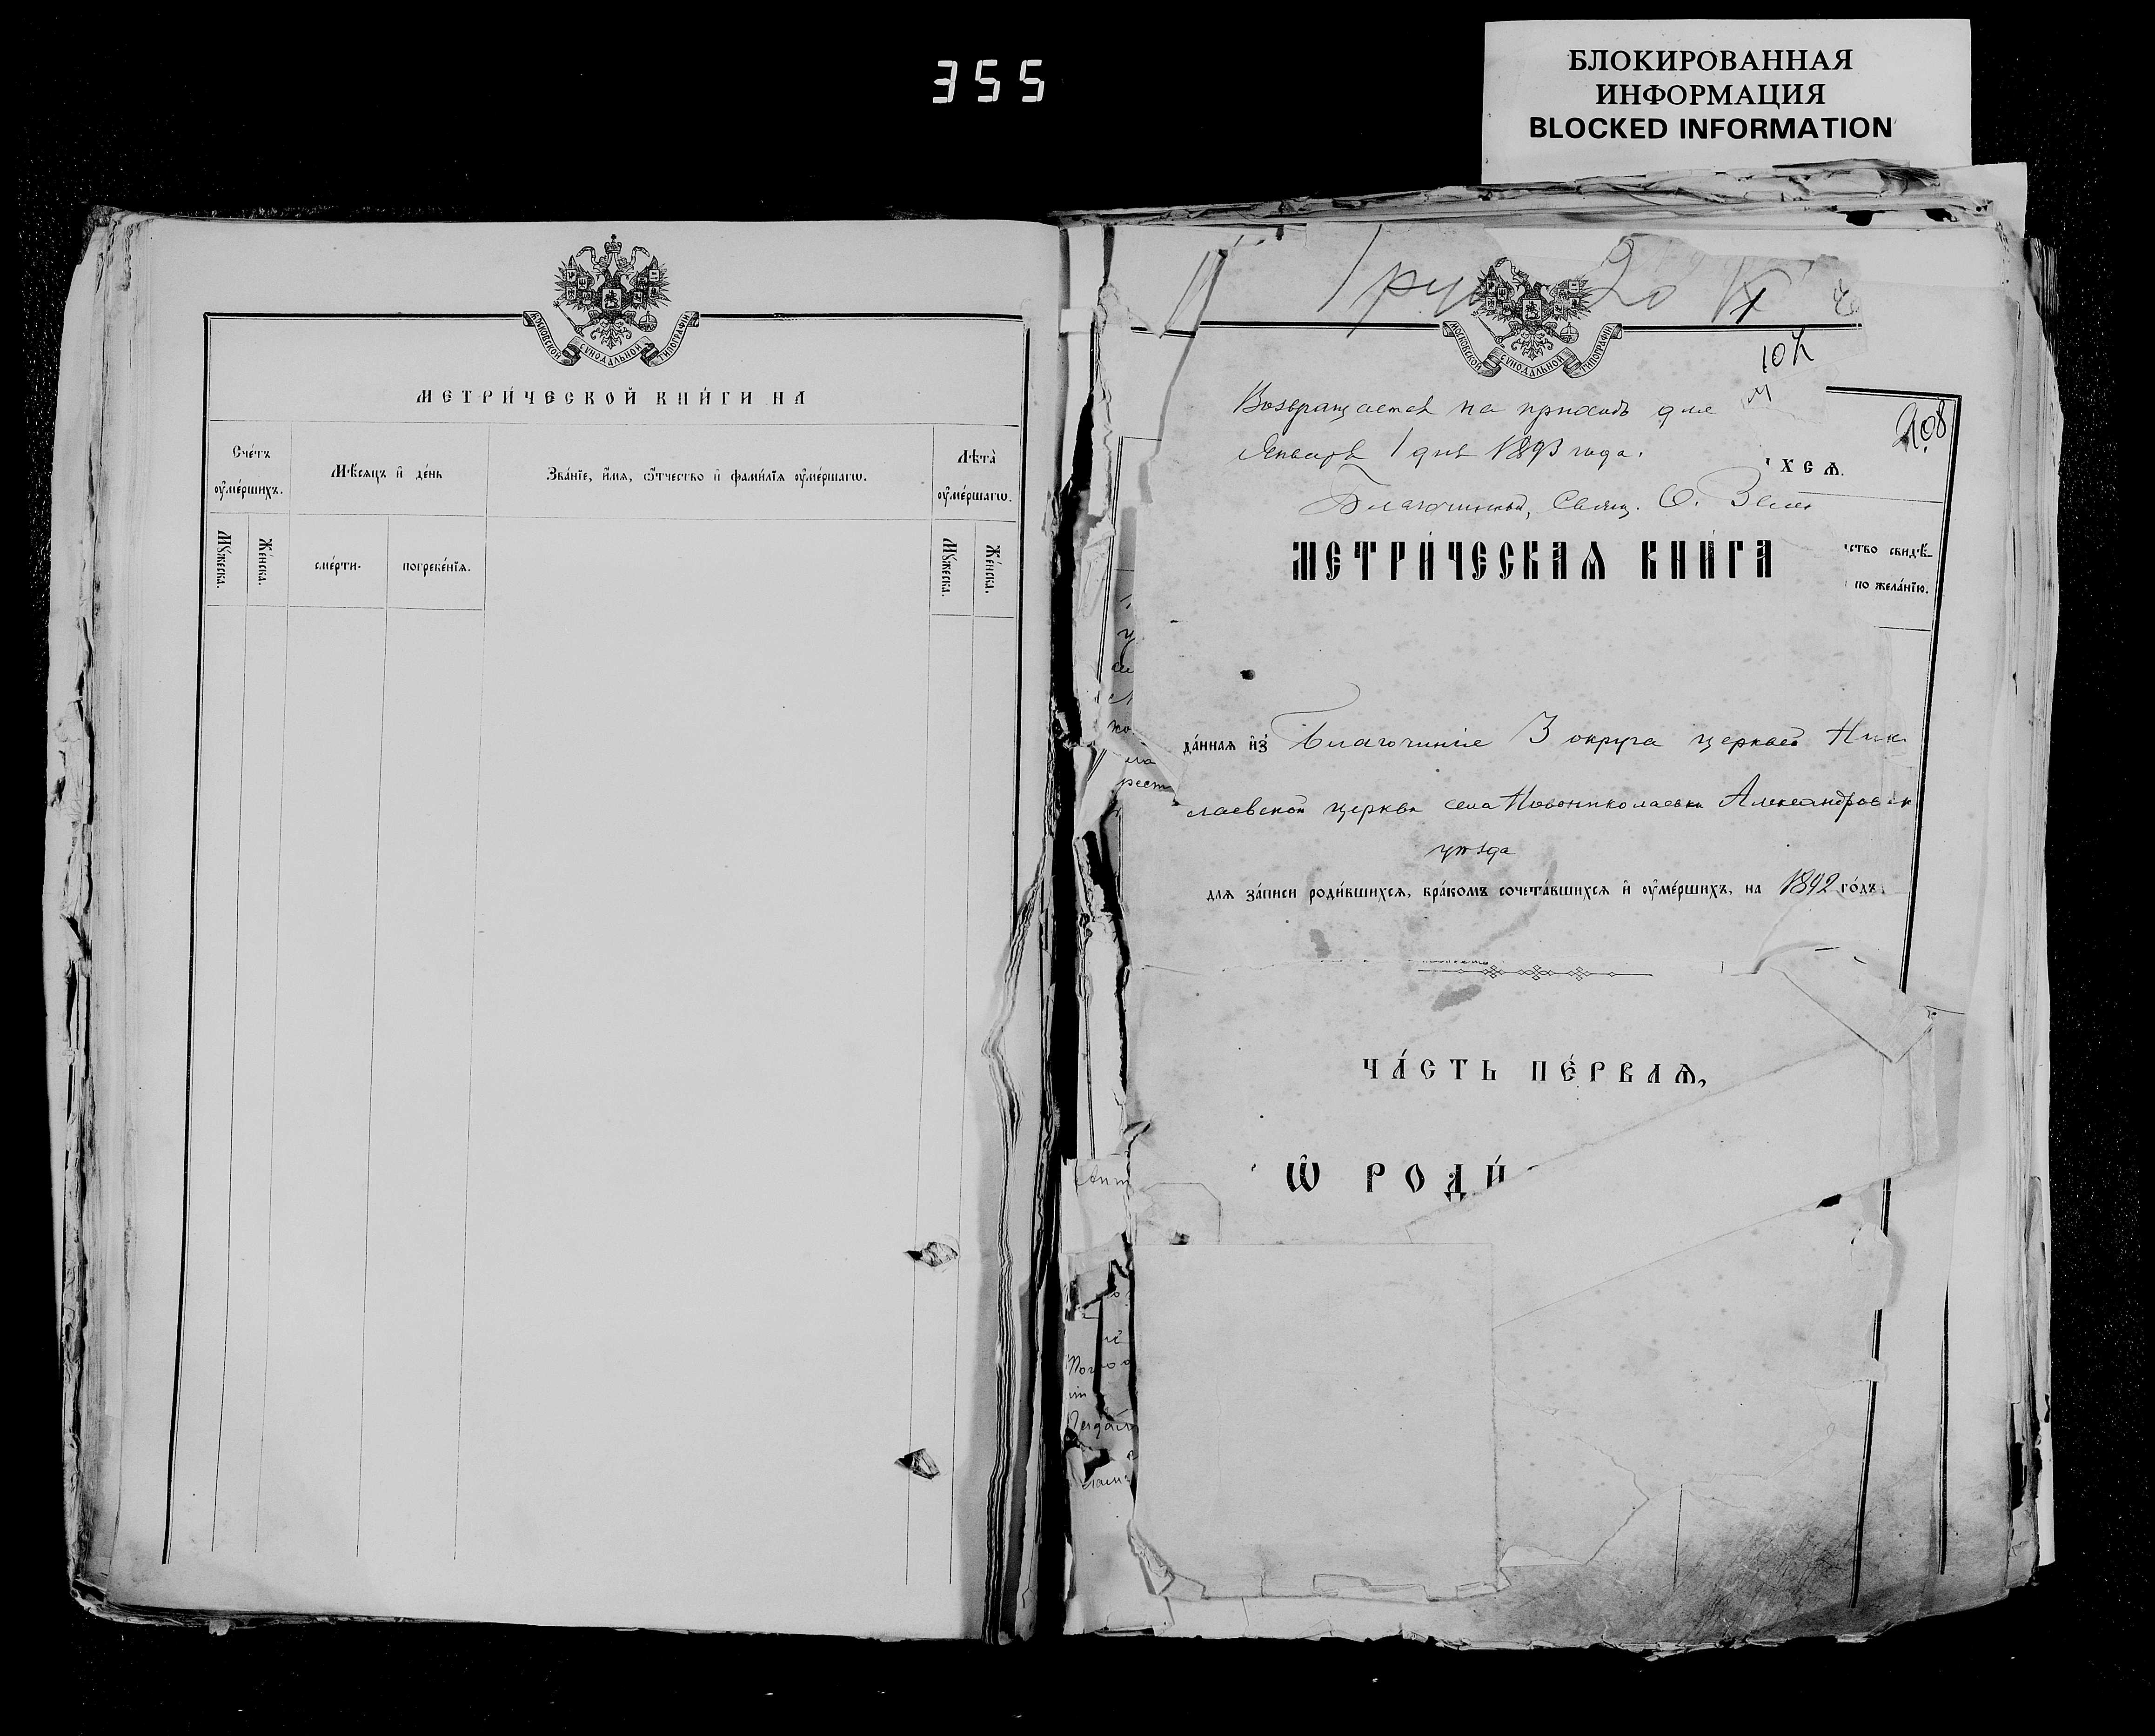 355
БЛОКИРОВАННАЯ
ИНФОРМАЦИЯ
BLOCKED INFORMATION
МОСКОВСКОЙ СѴНОДАЛЬНОЙ ТИПОГРАФІИ
МЕТРИ́ЧЕСКОЙ КНИ́ГИ НА
Сче́тъ
оуме́ршихъ.
Мѣ́сяцъ и де́нь
Зва́ніе, и́мя, ѻ́тчество и фами́лія оуме́ршагѡ.
Лѣта̀
оуме́ршагѡ.
Мꙋ́жеска.
Же́нска.
сме́рти.
погребе́нія.
Мꙋ́жеска.
Же́нска.
МОСКОВСКОЙ СѴНОДАЛЬНОЙ ТИПОГРАФІИ
107
208
Возвращается на приходъ для
Января 1 дня 1893 года.
ХСѦ.
Благочинный, Свящ. О.
МЕТРИ́ЧЕСКАѦ КНИ́ГА
ство свидѣ́-
по жела́нію.
да́нная из̾ Благочинія 3 округа церквей Ник
лаевской церкви села Новониколаевки Александровск
уѣзда
для за́писи роди́вшихся, бра́комъ сочета́вшихся и оуме́ршихъ, на 1892 го́дъ.
ЧА́СТЬ ПЕ́РВАѦ,
Ѡ РОДИ́